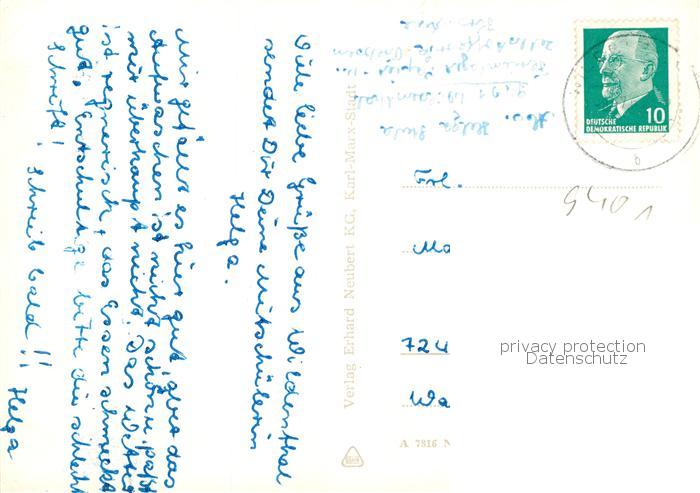 Viele liebe Grüße aus Wildenthal
sendet Dir Deine Mitschülerin
Helga.
Mir gefällt es hier gut, aber das
Aufwaschen ist nicht schön, paßt
mir überhaupt nicht. Das Wetter
ist regnerisch, das Essen schmeckt
gut. Entschuldige bitte die schlecht
Schrift!
Schreib bald!!
Helga
Verlag Erhard Neubert KG, Karl-Marx-Stadt
Abs. Helga
10
DEUTSCHE
DEMOKRATISCHE REPUBLIK
Frl.
9401
Mo
724
Wa
A 7816 N
privacy protection
Datenschutz